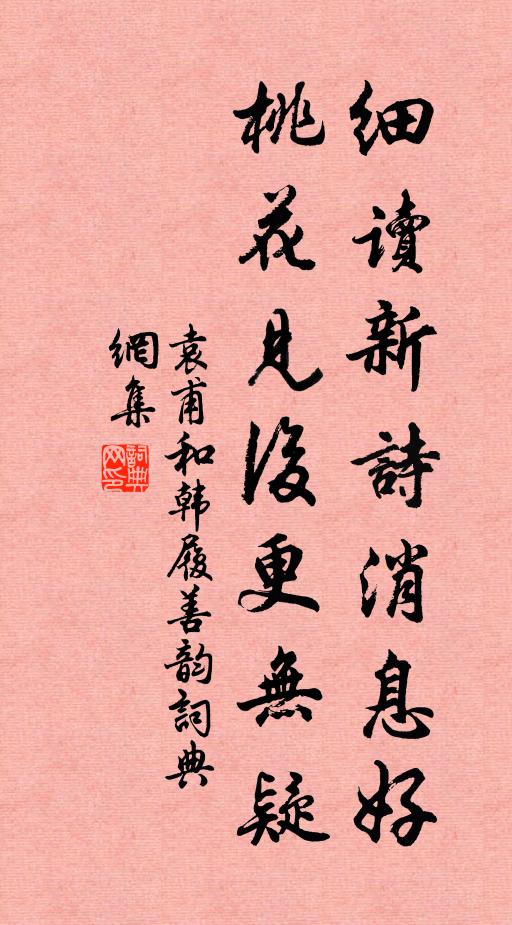 细讀新詩消息好
桃花見後更無疑
袁甫和韩履善韵詞典
網集
詞典
网印